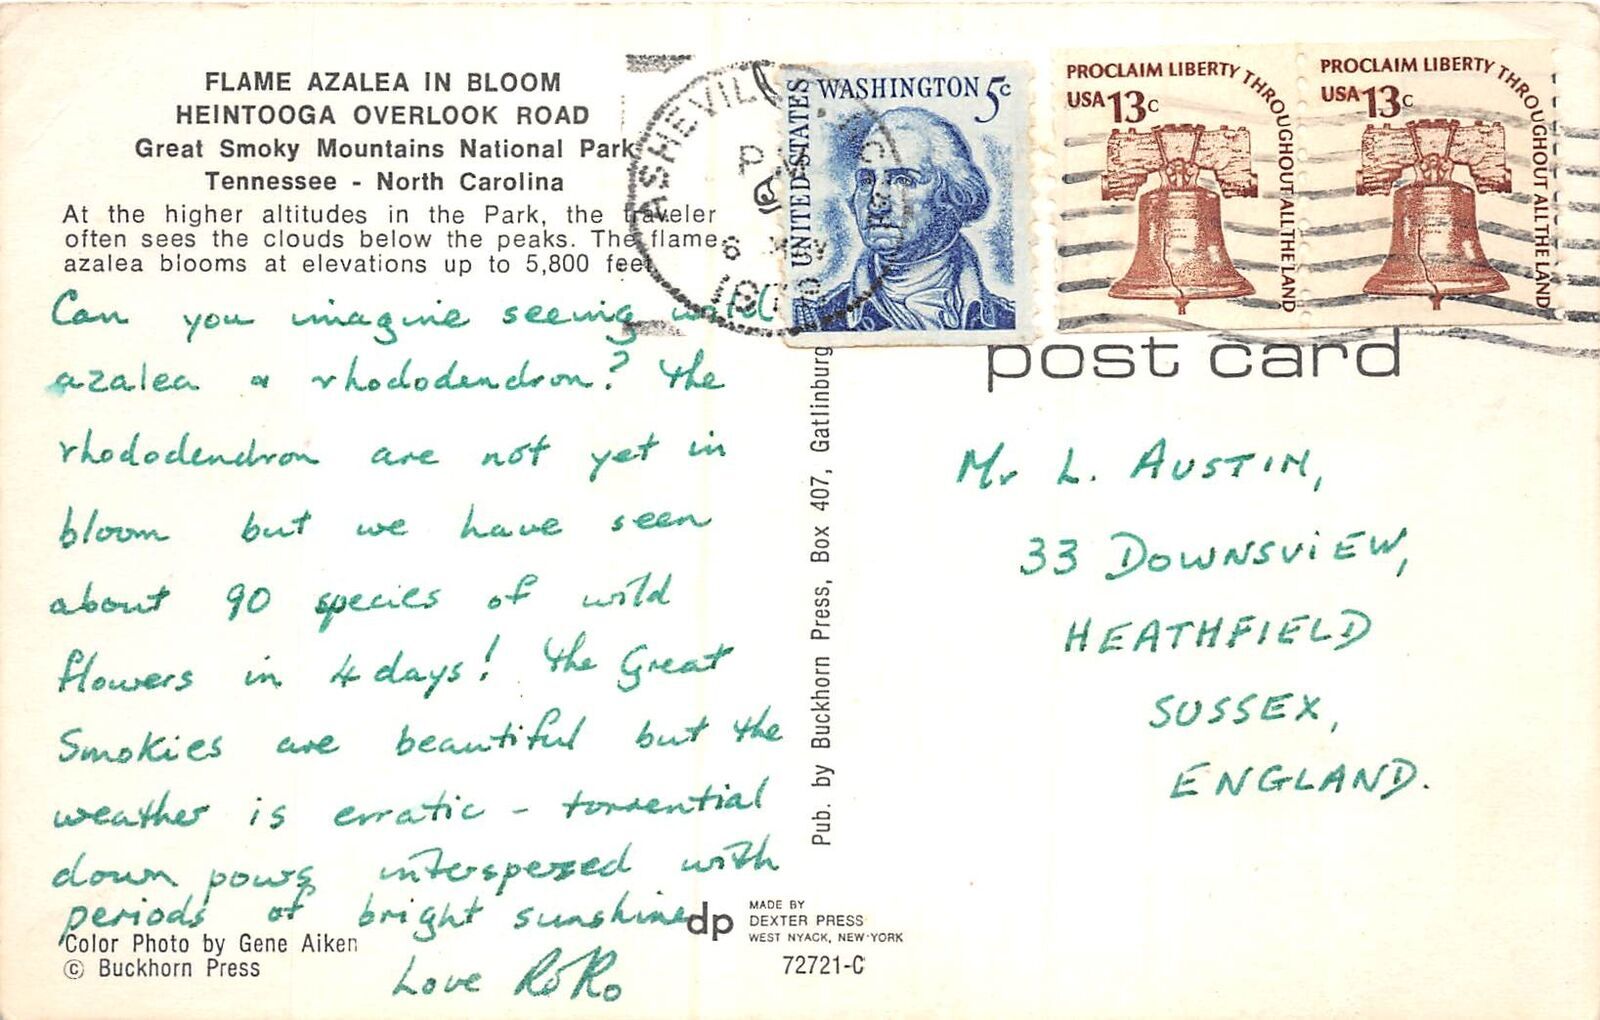 FLAME AZALEA IN BLOOM
HEINTOOGA OVERLOOK ROAD
Great Smoky Mountains National Park
Tennessee - North Carolina
At the higher altitudes in the Park, the traveler
often sees the clouds below the peaks. The flame
azalea blooms at elevations up to 5,800 feet.
Can you imagine seeing wild
azalea & rhododendron? The
rhododendron are not yet in
bloom but we have seen
about 90 species of wild
flowers in 4 days! The Great
Smokies are beautiful but the
weather is erratic - torrential
down pours interspersed with
periods of bright sunshine
Love RoRo
Color Photo by Gene Aiken
© Buckhorn Press
Pub. by Buckhorn Press, Box 407, Gatlinburg
dp
MADE BY
DEXTER PRESS
WEST NYACK, NEW YORK
72721-C
ASHEVILLE
PM
6
UNITED STATES
WASHINGTON 5c
PROCLAIM LIBERTY THROUGHOUT ALL THE LAND
USA 13c
PROCLAIM LIBERTY THROUGHOUT ALL THE LAND
USA 13c
post card
Mr L. AUSTIN,
33 DOWNSVIEW,
HEATHFIELD
SUSSEX,
ENGLAND.